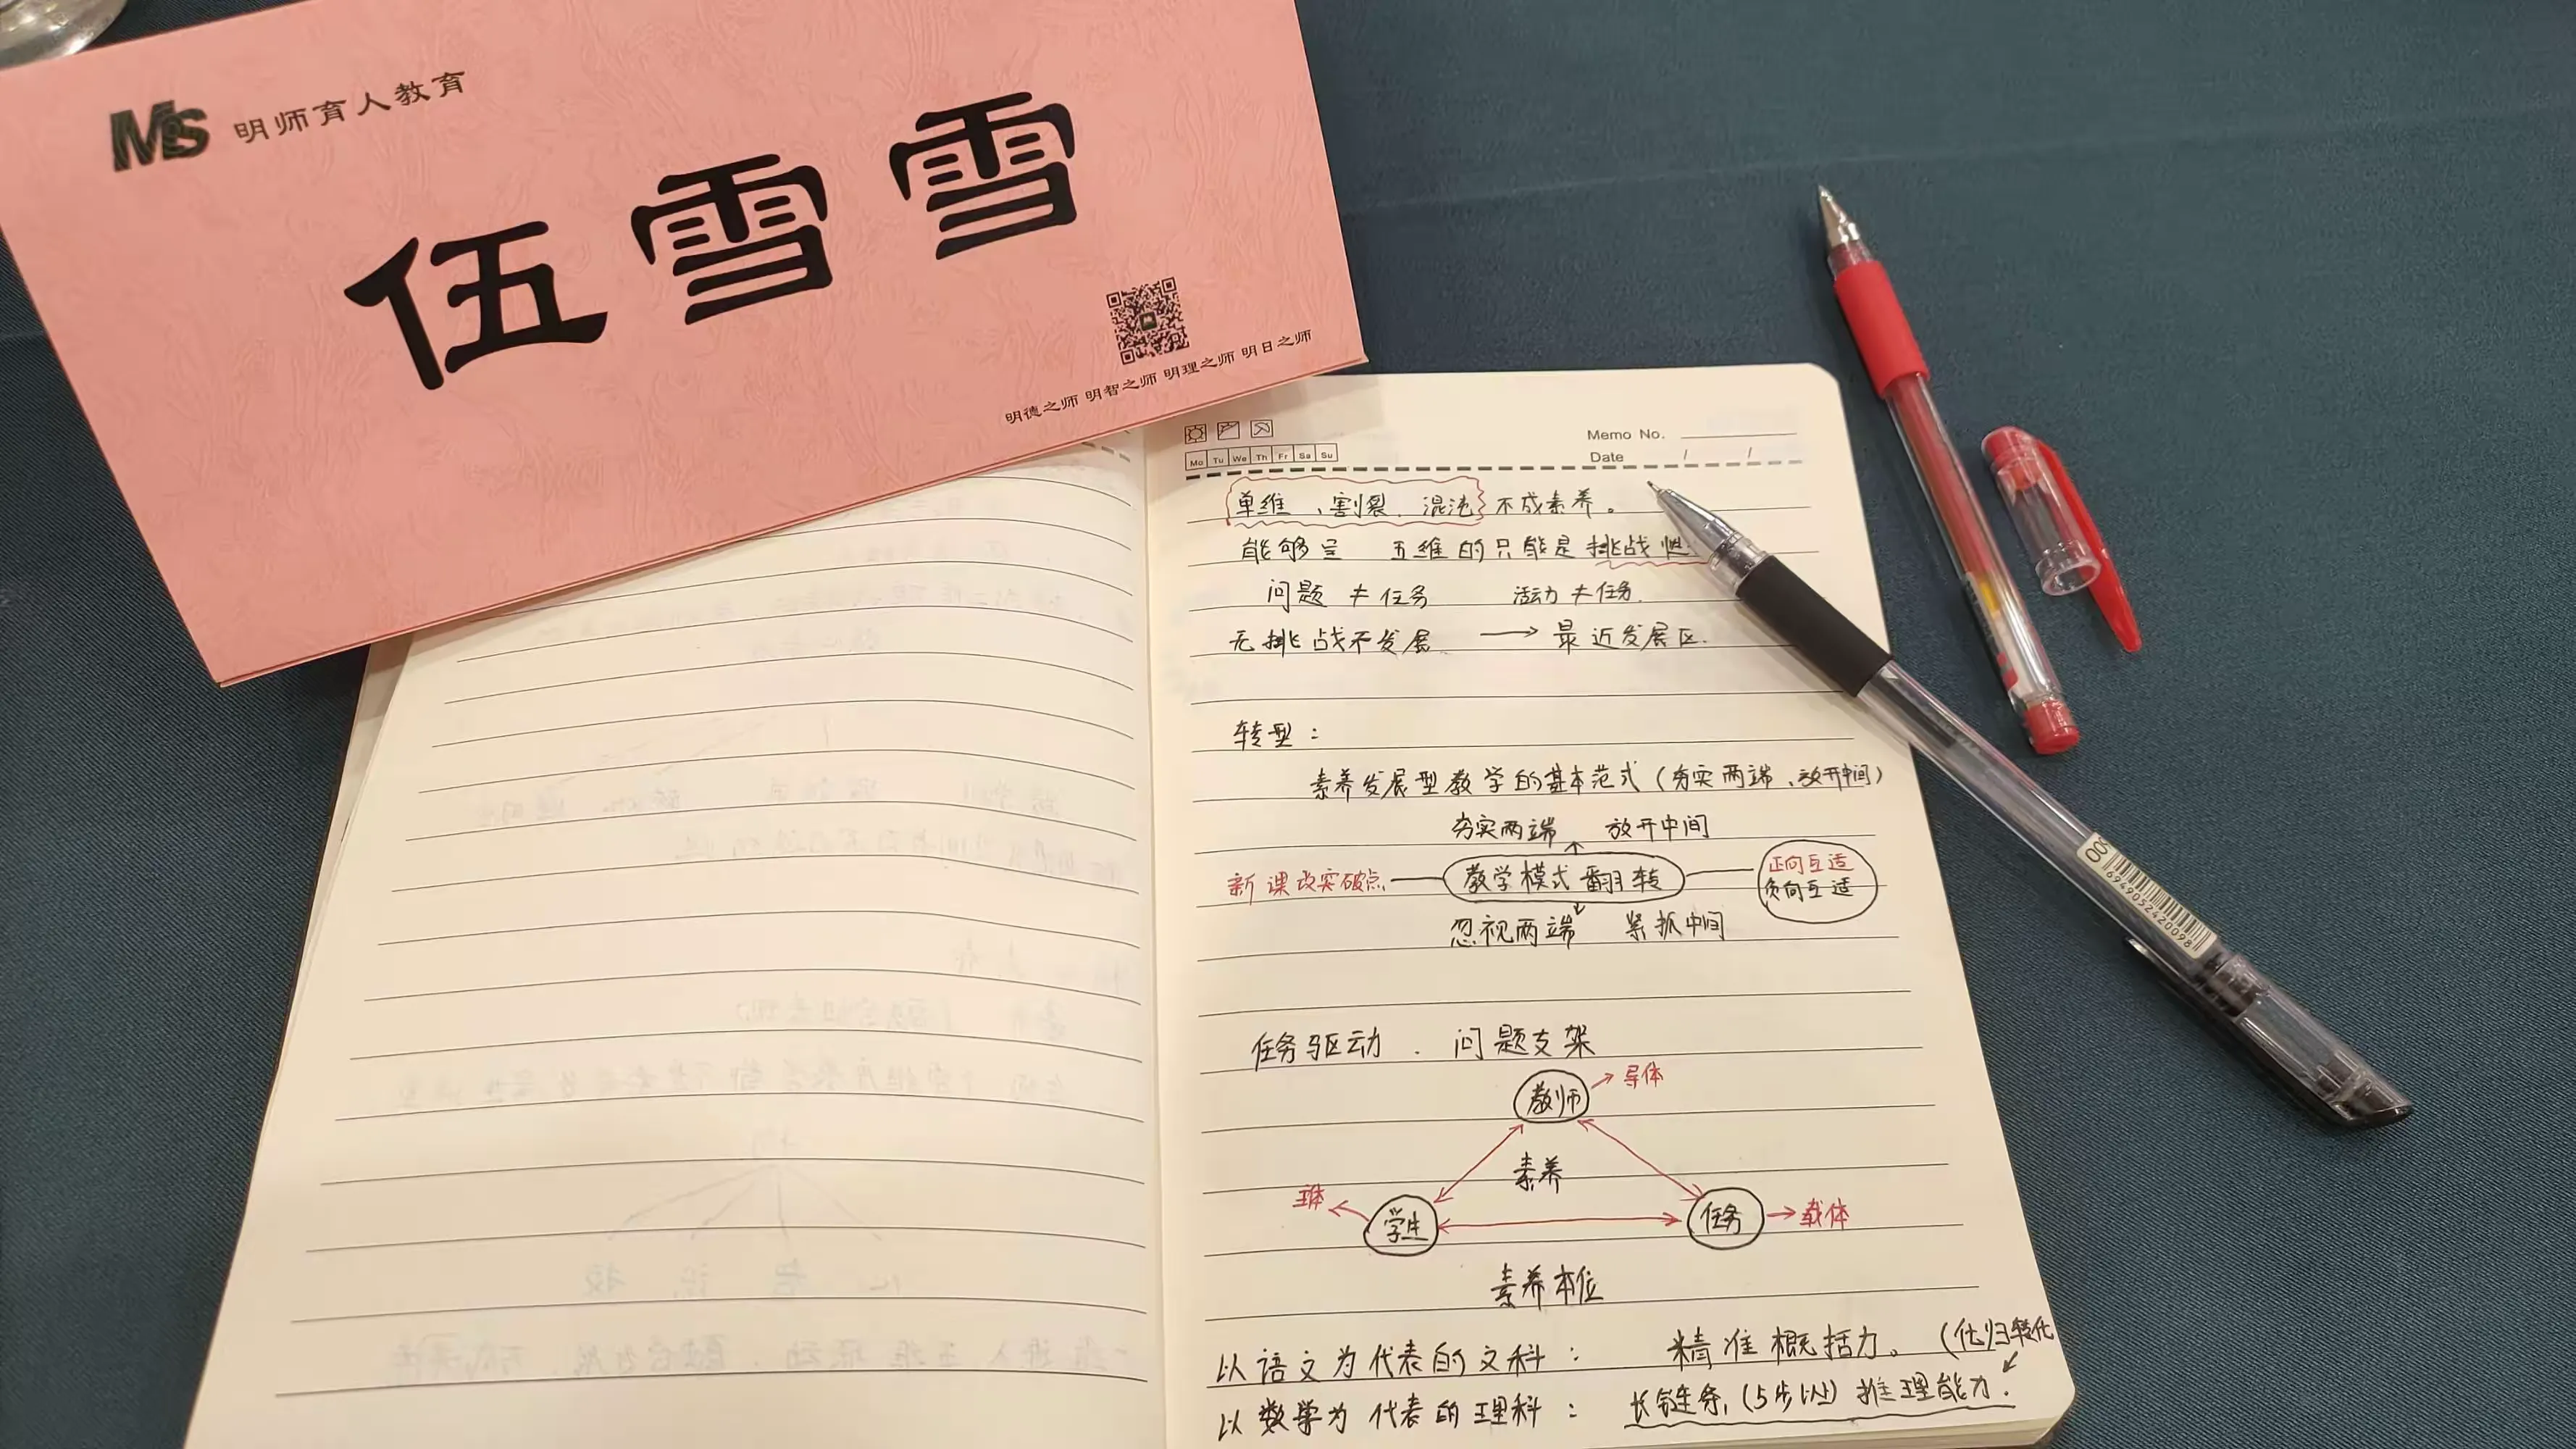 MS 明师育人教育
伍雪雪
明德之师 明智之师 明理之师 明日之师
Memo No.
Mo Tu We Th Fr Sa Su
Date / /
单维、割裂、混沌不成素养。
能够呈 五维的只能是挑战性
问题≠任务 活动≠任务.
无挑战不发展 → 最近发展区.
转型：
素养发展型教学的基本范式(夯实两端、放开中间)
夯实两端 放开中间
新课改突破点 教学模式翻转 正向互适
负向互适
忽视两端 紧抓中间
任务驱动. 问题支架
教师 → 导体
素养
主体 学生 任务 → 载体
素养本位
以语文为代表的文科： 精准概括力。(化归转化
以数学为代表的理科： 长链条,(5步以上)推理能力.
6949052420098